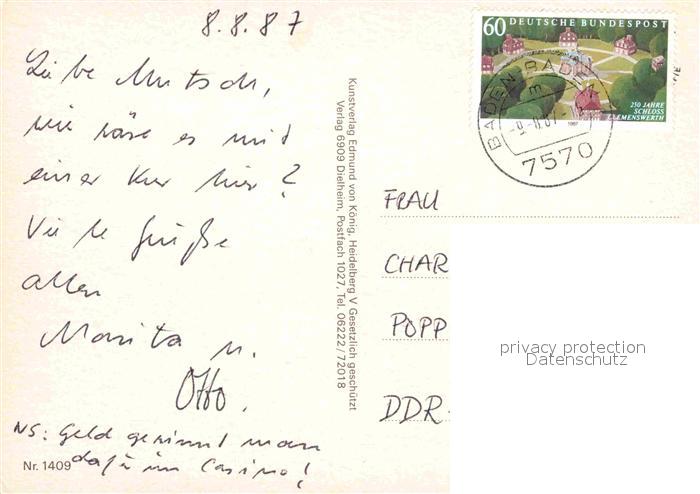 8.8.87
Liebe Mutsch,
wie wäre es mit
einer Kur hier?
Viele Grüße
allen
Monita u.
Otto.
NS: Geld gewinnt man
dafür im Casino!
Nr. 1409
Kunstverlag Edmund von König, Heidelberg V Gesetzlich geschützt
Verlag 6909 Dielheim, Postfach 1027, Tel. 06222/72018
60 DEUTSCHE BUNDESPOST
250 JAHRE
SCHLOSS
CLEMENSWERTH
1987
BADEN-BADEN
m
7570
FRAU
CHAR
POPP
DDR-
privacy protection
Datenschutz